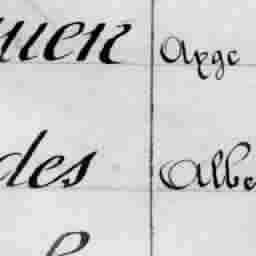 uen Apge
des Albe